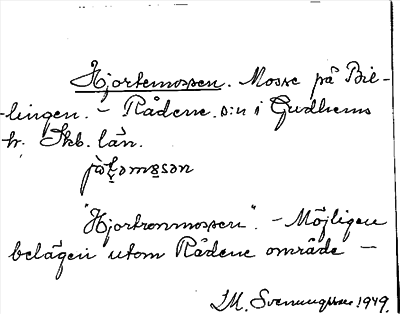 Hjortemossen. Mosse på Bil-
lingen. – Rådene s:n i Gudhems
hr. Skb. län.
"Hjortronmossen". – Möjligen
belägen utom Rådene område –
I.M. Svennungsson 1949.